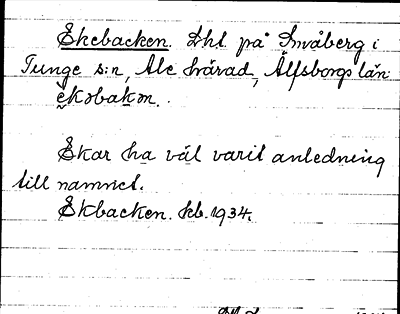 Ekebacken. Lht på Småberg i
Tunge s:n, Ale härad, Älfsborgs län.
ekəbakən.
Ekar ha väl varit anledning
till namnet.
Ekbacken. kb. 1934.